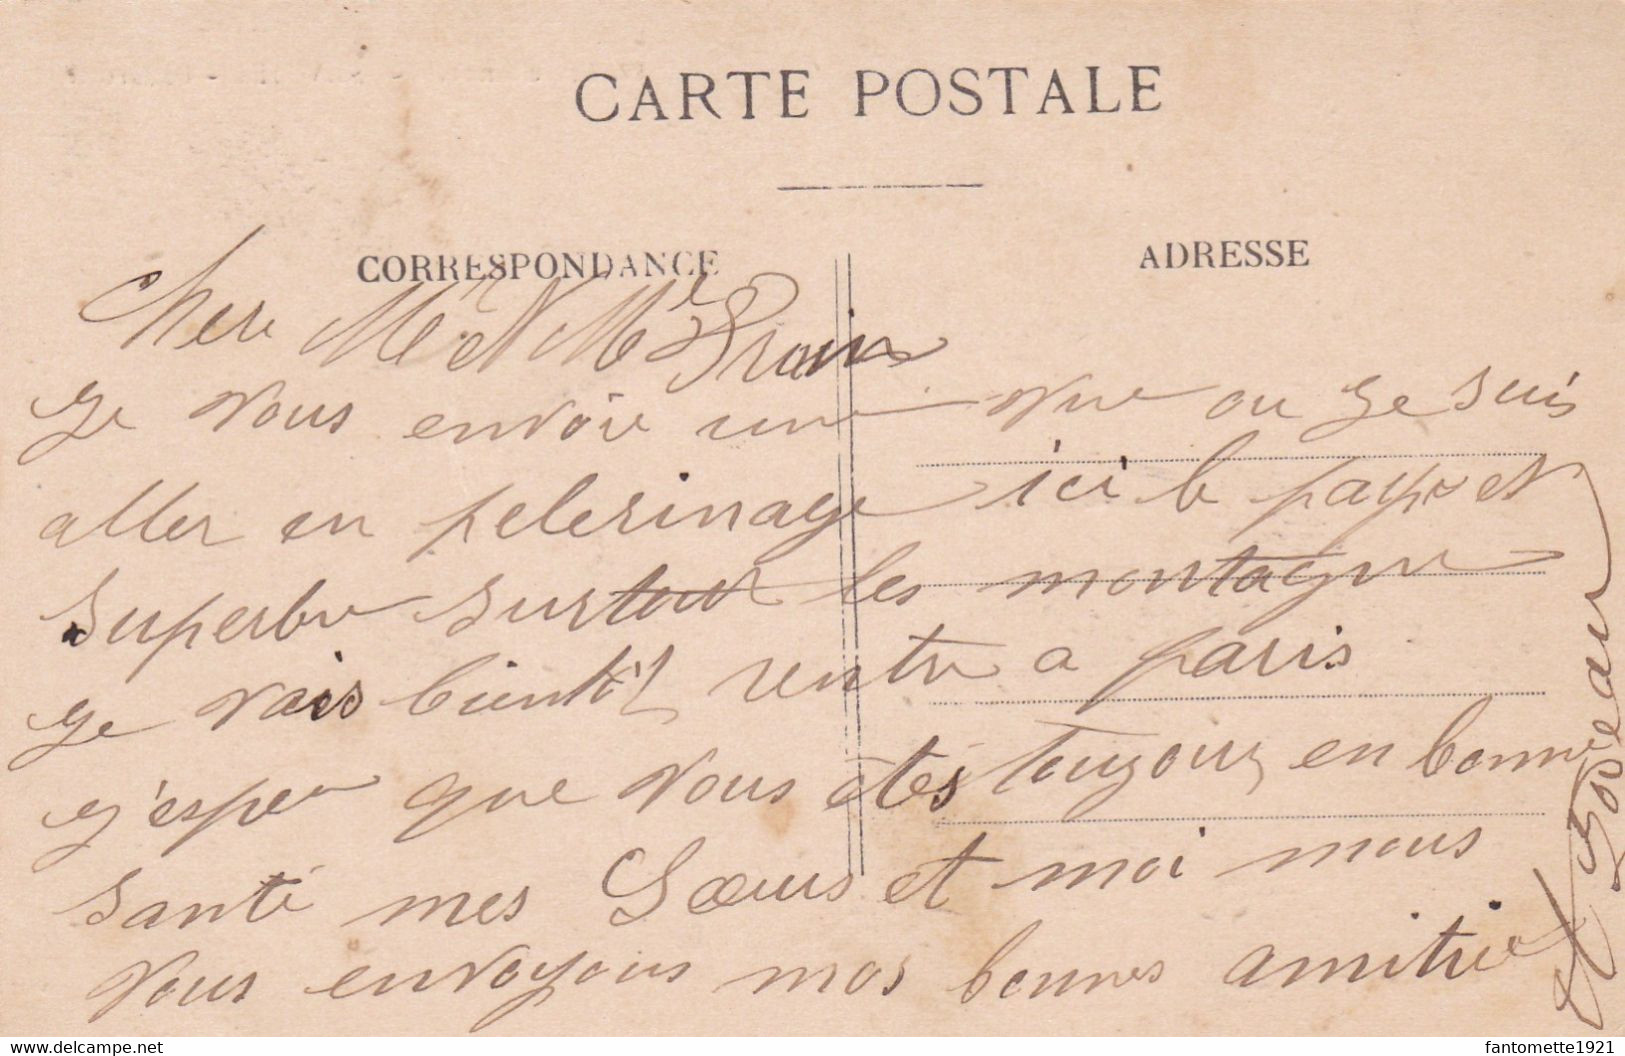 CARTE POSTALE
CORRESPONDANCE
ADRESSE
Cher Mr et Me
Je vous envoie une vue ou je suis
aller en pelerinage ici le pays et
superbe surtout les montagne
je vais bientôt rentre a paris
j'esper que vous êtes toujours en bonne
santé mes Sœurs et moi nous
vous envoyons nos bonnes amitiée
www.delcampe.net
fantomette1921